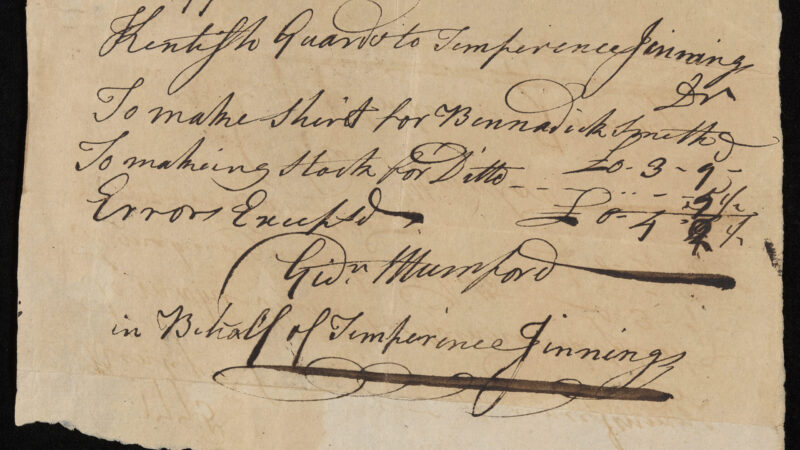 Kentish Guard to Temperence Jinning
Dr
To make Shirt for Bennadick Smith
£0-3-9-
To makeing Stock for Ditto --
Errors Excepd £0-4
Gidn Mumford
in Behalf of Temperence Jinning